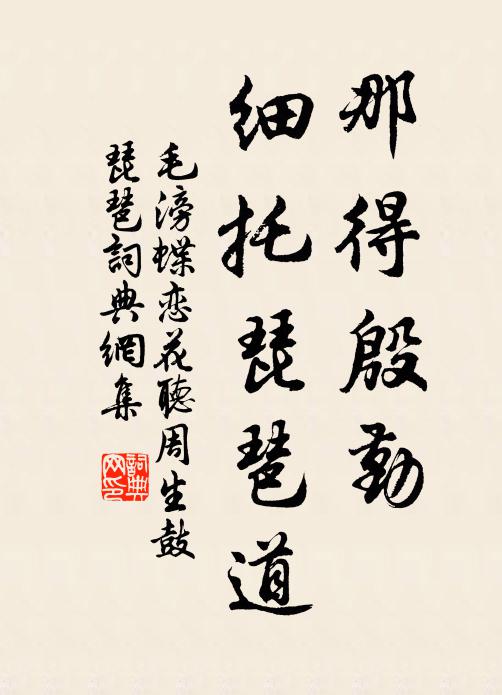 那得殷勤
细托琵琶道
毛滂蝶恋花聴周生鼓
琵琶詞典網集
詞典
网印